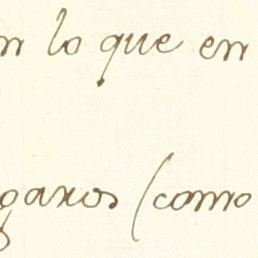 n lo que en
garos (como